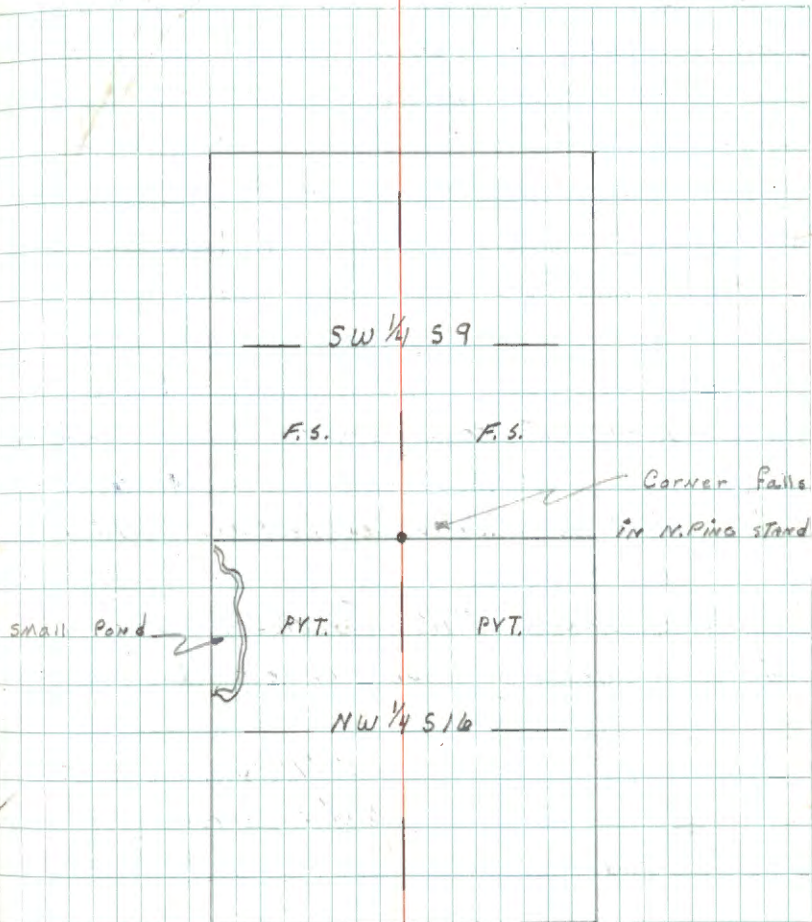 SW 1/4 S9
F.S. F.S.
Corner falls
in N. Pine stand
small Pond
PVT. PVT.
NW 1/4 S16